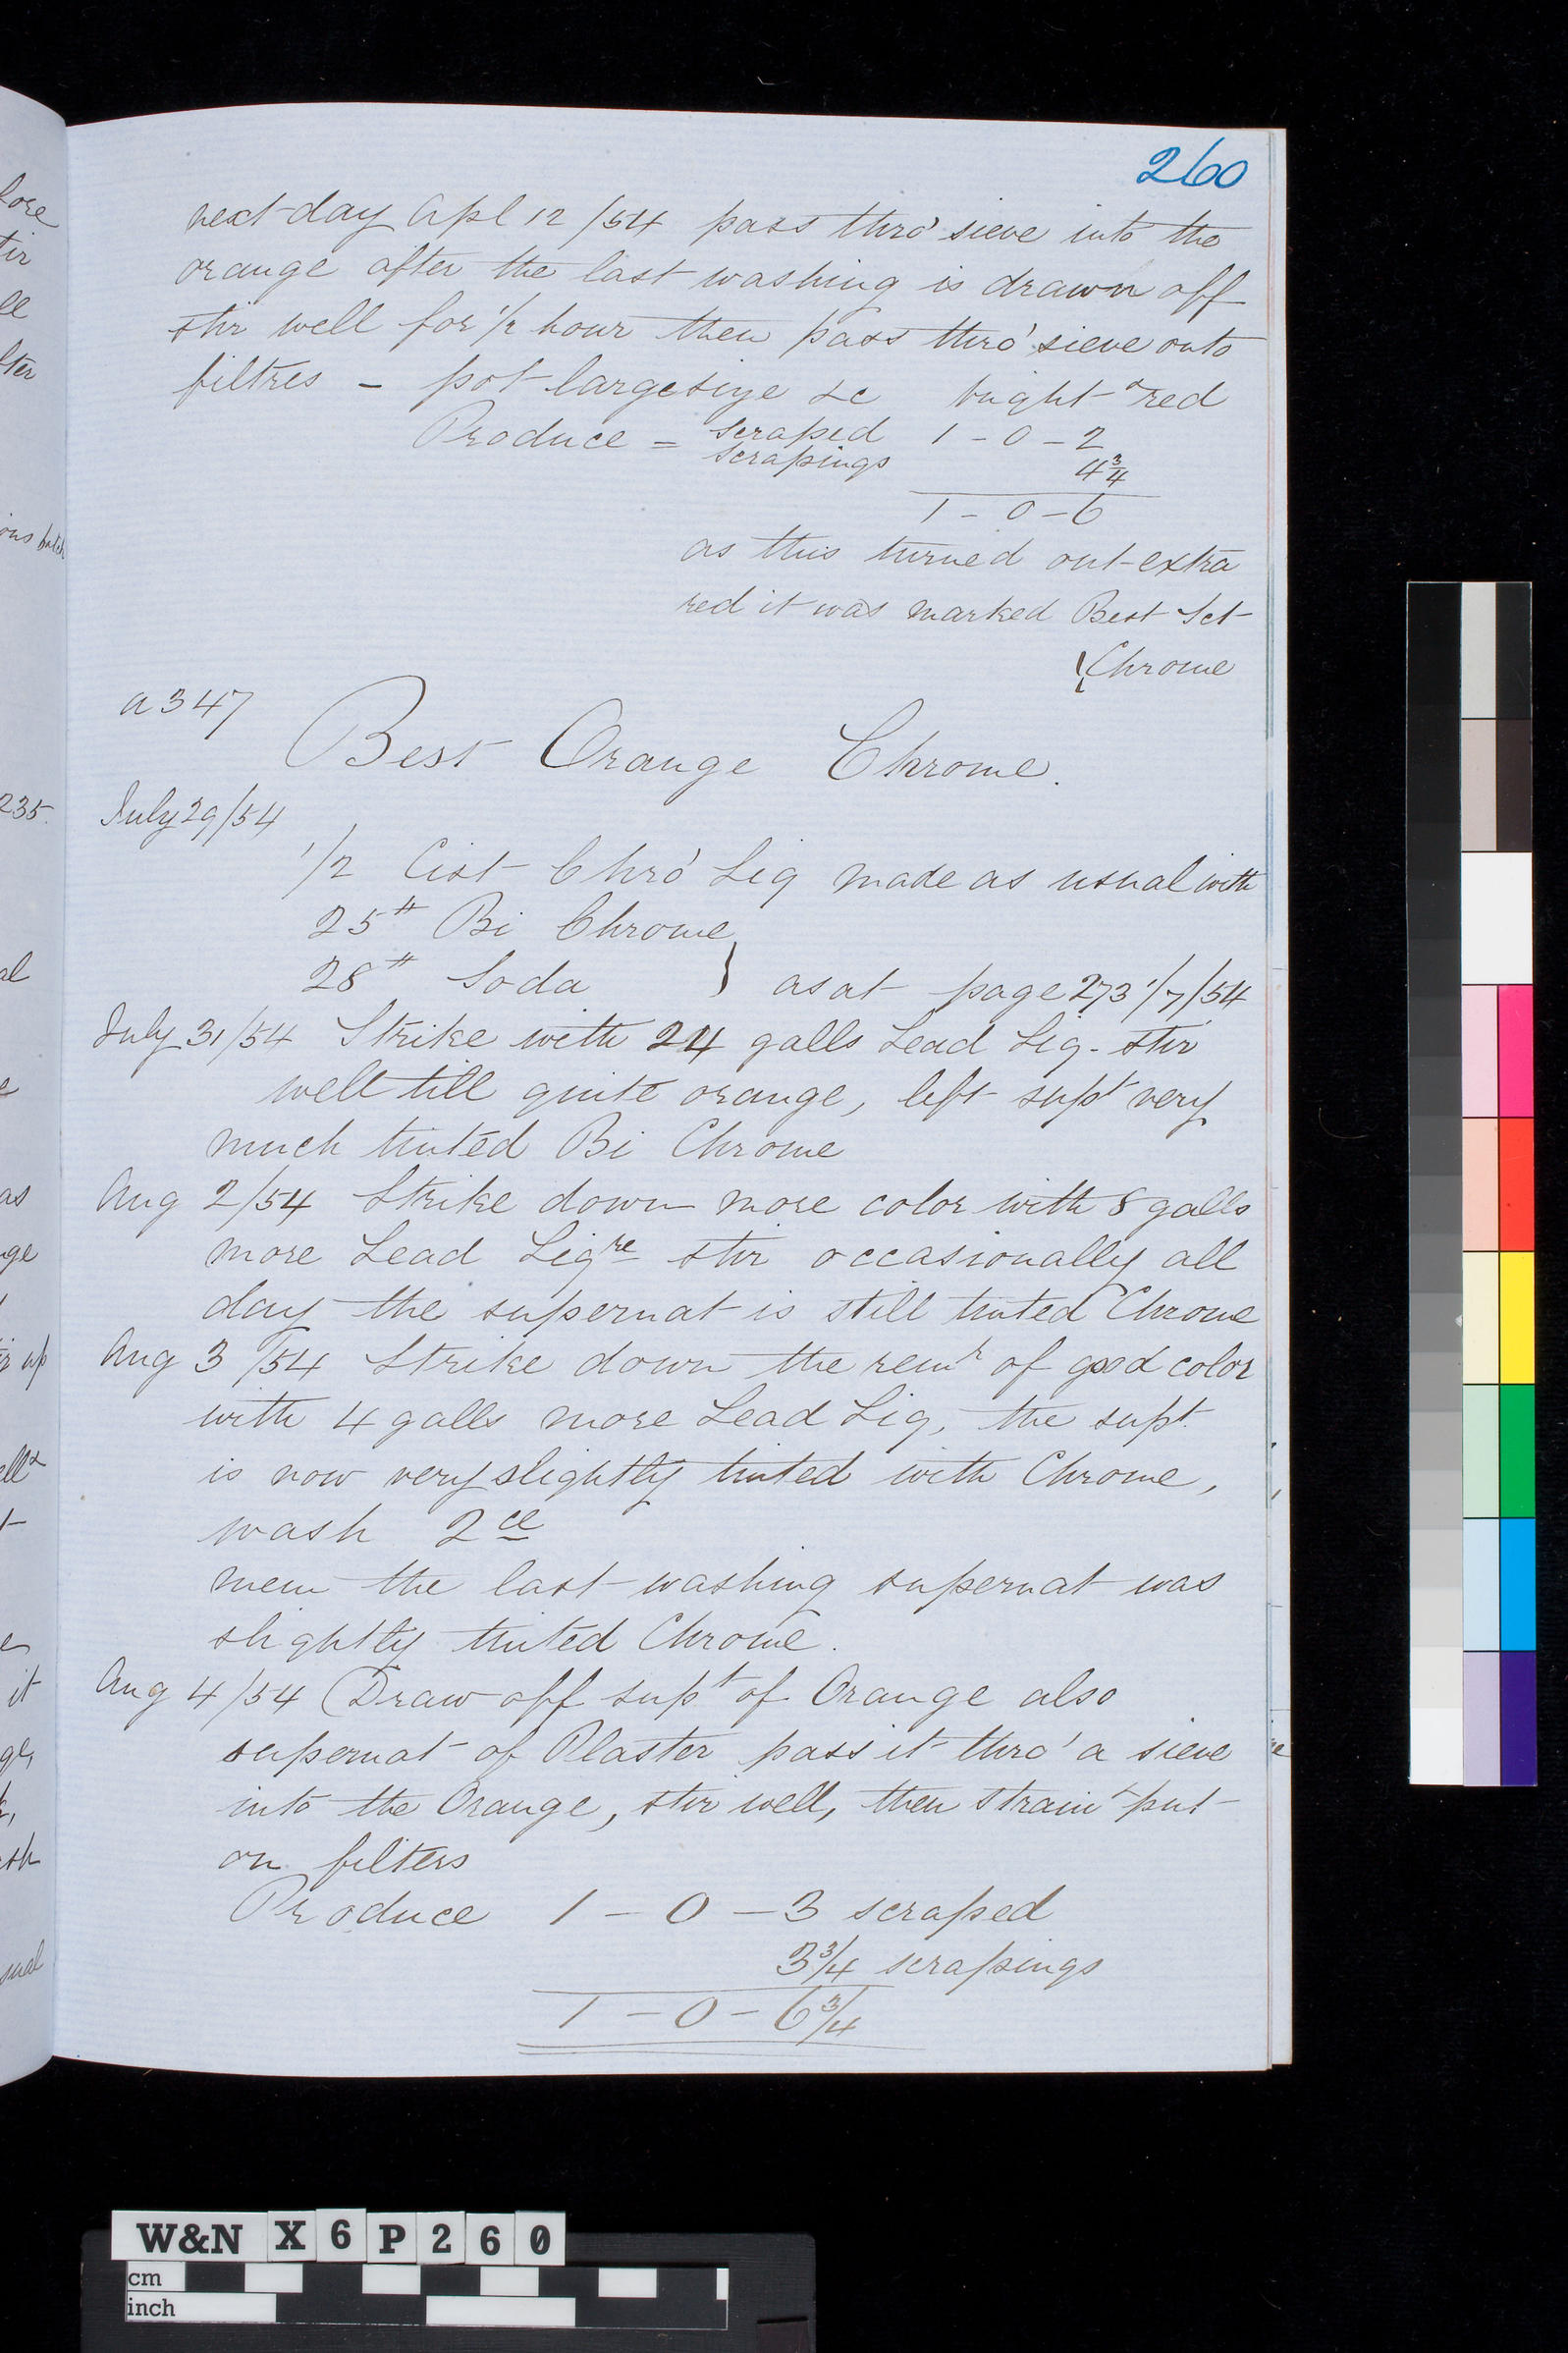 260
next day Apl 12/54 pass thro' sieve into the
orange after the last washing is drawn off
stir well for 1/2 hour then pass thro' sieve onto
filtres – pot large size &c bright red
Produce = scraped 1 - 0 - 2
scrapings 4 3/4
1 - 0 - 6
as this turned out extra
red it was marked Best Sct
Chrome
a347
Best Orange Chrome.
July 29/54
1/2 Cist Chro' Liq made as usual with
25# Bi Chrome
28# Soda } as at page 273 1/7/54
July 31/54 Strike with 24 galls Lead Liq. stir
well till quite orange, left supt very
much tinted Bi Chrome
Aug 2/54 Strike down more color with 8 galls
more Lead Liqre stir occasionally all
day the supernat is still tinted Chrome
Aug 3/54 Strike down the remr of good color
with 4 galls more Lead Liq, the supt
is now very slightly tinted with Chrome,
wash 2ce
mem the last washing supernat was
slightly tinted Chrome.
Aug 4/54 Draw off supt of Orange also
supernat of Plaster pass it thro' a sieve
into the Orange, stir well, then strain + put
on filters
Produce 1 - 0 - 3 scraped
3 3/4 scrapings
1 - 0 - 6 3/4
W&N X6P260
cm
inch